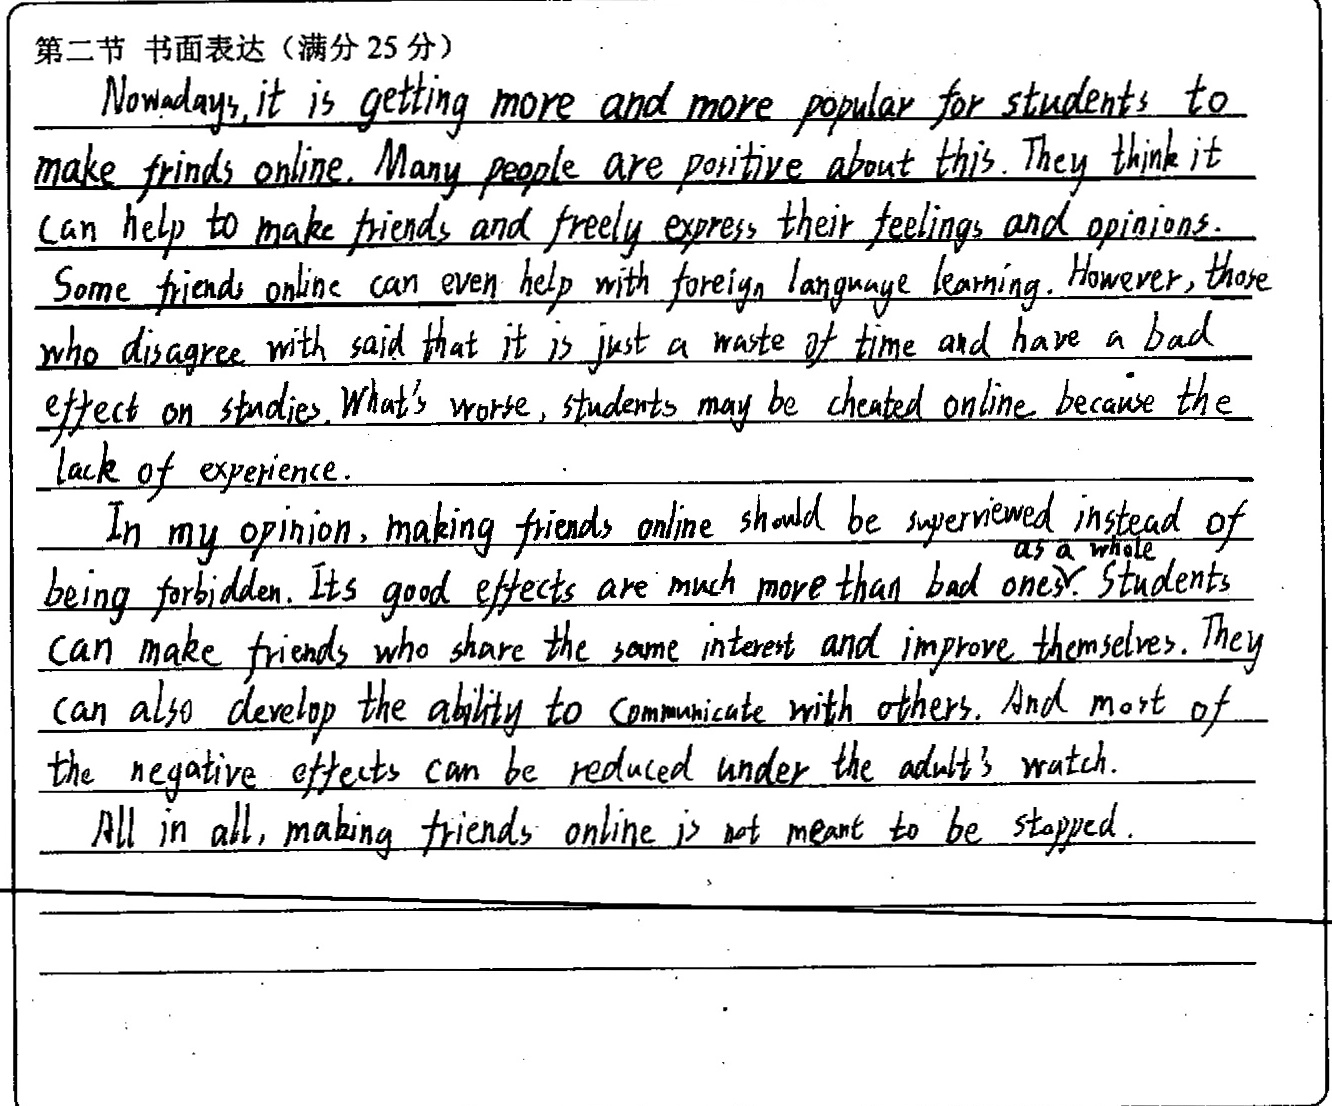 第二节 书面表达（满分 25 分）
Nowadays, it is getting more and more popular for students to
make frinds online. Many people are positive about this. They think it
can help to make friends and freely express their feelings and opinions.
Some friends online can even help with foreign language learning. However, those
who disagree with said that it is just a waste of time and have a bad
effect on studies. What's worse, students may be cheated online because the
lack of experience.
In my opinion, making friends online should be superviewed instead of
as a whole
being forbidden. Its good effects are much more than bad ones. Students
can make friends who share the same interest and improve themselves. They
can also develop the ability to communicate with others. And most of
the negative effects can be reduced under the adult's watch.
All in all, making friends online is not meant to be stopped.